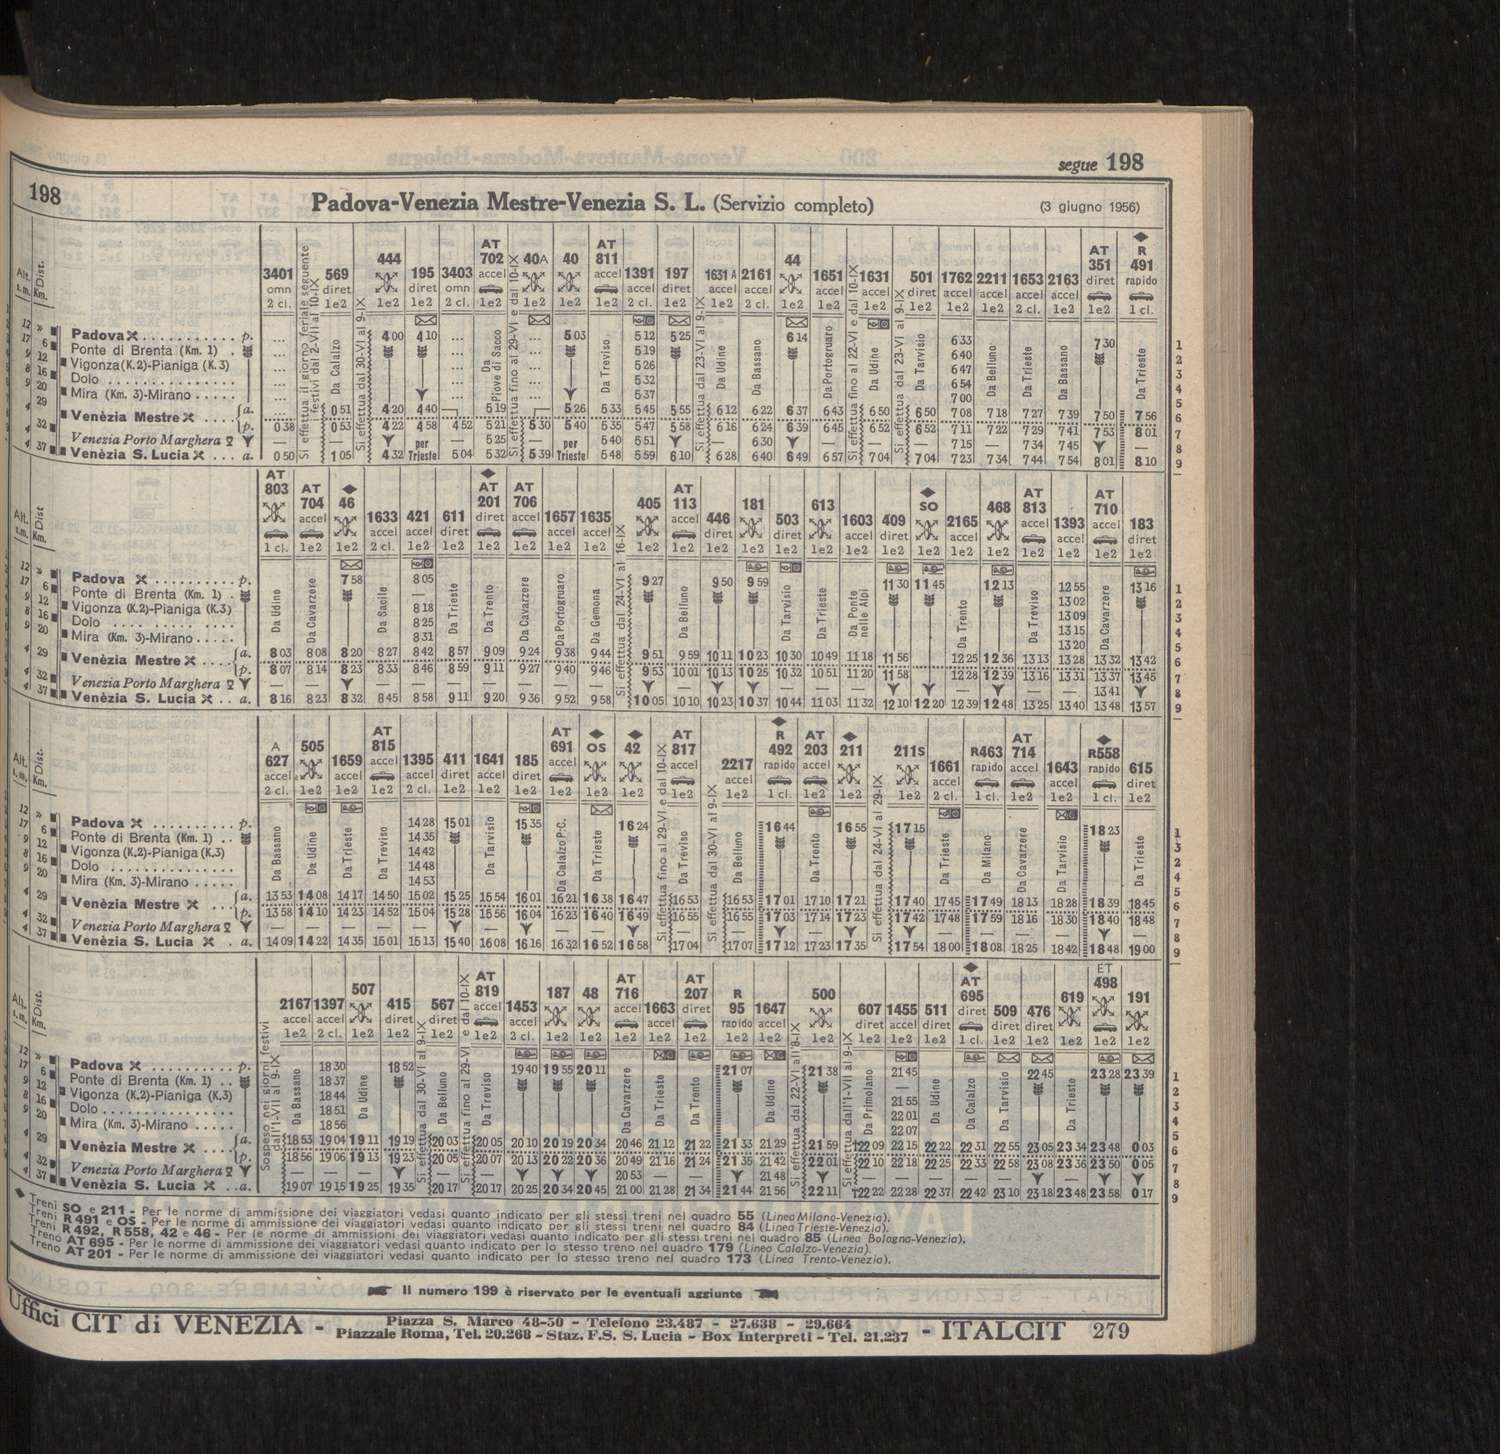 segue 198
198
Padova-Venezia Mestre-Venezia S. L. (Servizio completo)
(3 giugno 1956)
Alt. s.m. Dist. Km.
3401 569 444 195 3403 AT 702 40A 40 AT 811 1391 197 1631 A 2161 44 1651 1631 501 1762 2211 1653 2163 AT 351 R 491
omn diret diret omn accel accel accel diret accel accel accel accel diret accel accel accel accel diret rapido
2 cl. 1e2 1e2 1e2 2 cl. 1e2 1e2 1e2 1e2 2 cl. 1e2 1e2 2 cl. 1e2 1e2 1e2 1e2 1e2 1e2 2 cl. 1e2 1e2 1 cl.
Si effettua il giorno feriale seguente i festivi dal 2-VII al 10-IX
Da Calalzo
Si effettua dal 30-VI al 9-IX
Da Piove di Sacco
Si effettua fino al 29-VI e dal 10-IX
Da Treviso
Si effettua dal 23-VI al 9-IX
Da Udine
Da Bassano
Da Portogruaro
Si effettua fino al 22-VI e dal 10-IX
Da Udine
Si effettua dal 23-VI al 9-IX
Da Tarvisio
Da Belluno
Da Trieste
Da Bassano
Da Trieste
Padova . . . p. ... 4 00 4 10 ... ... 5 03 5 12 5 25 6 14 6 33 7 30 1
Ponte di Brenta (Km. 1) ... 5 19 6 40 2
Vigonza (K.2)-Pianiga (K.3) ... 5 26 6 47 3
Dolo ... 5 32 6 54 4
Mira (Km. 3)-Mirano ... 5 37 7 00 5
Venèzia Mestre a. 0 51 4 20 4 40 5 19 5 26 5 33 5 45 5 55 6 12 6 22 6 37 6 43 6 50 6 50 7 08 7 18 7 27 7 39 7 50 7 56 6
p. 0 38 0 53 4 22 4 58 4 52 5 21 5 30 5 40 5 35 5 47 5 58 6 16 6 24 6 39 6 45 6 52 6 52 7 11 7 22 7 29 7 41 7 53 8 01 7
Venezia Porto Marghera — — per — 5 25 — per 5 40 5 51 — 6 30 — — — 7 15 — 7 34 7 45 8
Venèzia S. Lucia a. 0 50 1 05 4 32 Trieste 5 04 5 32 5 39 Trieste 5 48 5 59 6 10 6 28 6 40 6 49 6 57 7 04 7 04 7 23 7 34 7 44 7 54 8 01 8 10 9
Alt. s.m. Dist Km.
AT 803 AT 704 46 1633 421 611 AT 201 AT 706 1657 1635 405 AT 113 446 181 503 613 1603 409 SO 2165 468 AT 813 1393 AT 710 183
accel accel accel diret diret accel accel accel accel diret diret diret accel diret accel accel accel accel diret
1 cl. 1e2 1e2 2 cl. 1e2 1e2 1e2 1e2 1e2 1e2 1e2 1e2 1e2 1e2 1e2 1e2 1e2 1e2 1e2 1e2 1e2 1e2 1e2 1e2 1e2
Da Udine
Da Cavarzere
Da Sacile
Da Trieste
Da Trento
Da Cavarzere
Da Portogruaro
Da Gemona
Si effettua dal 24-VI al 16-IX
Da Belluno
Da Tarvisio
Da Trieste
Da Ponte nelle Alpi
Da Trento
Da Treviso
Da Cavarzere
Padova p. 7 58 8 05 9 27 9 50 9 59 11 30 11 45 12 13 12 55 13 16 1
Ponte di Brenta (Km. 1) — 13 02 2
Vigonza (K.2)-Pianiga (K.3) 8 18 13 09 3
Dolo 8 25 13 15 4
Mira (Km. 3)-Mirano 8 31 13 20 5
Venèzia Mestre a. 8 03 8 08 8 20 8 27 8 42 8 57 9 09 9 24 9 38 9 44 9 51 9 59 10 11 10 23 10 30 10 49 11 18 11 56 12 25 12 36 13 13 13 28 13 32 13 42 6
p. 8 07 8 14 8 23 8 33 8 46 8 59 9 11 9 27 9 40 9 46 9 53 10 01 10 13 10 25 10 32 10 51 11 20 11 58 12 28 12 39 13 16 13 31 13 37 13 45 7
Venezia Porto Marghera — — — — — — — — — — — — — — — — 13 41 8
Venèzia S. Lucia a. 8 16 8 23 8 32 8 45 8 58 9 11 9 20 9 36 9 52 9 58 10 05 10 10 10 23 10 37 10 44 11 03 11 32 12 10 12 20 12 39 12 48 13 25 13 40 13 48 13 57 9
Alt. s.m. Dist. Km.
A 627 505 1659 AT 815 1395 411 1641 185 AT 691 OS 42 AT 817 2217 R 492 AT 203 211 211S 1661 R463 AT 714 1643 R558 615
accel accel accel accel diret diret diret accel accel accel rapido diret accel rapido accel accel rapido diret
2 cl. 1e2 1e2 1e2 2 cl. 1e2 1e2 1e2 1e2 1e2 1e2 1e2 1e2 1 cl. 1e2 1e2 1e2 2 cl. 1 cl. 1e2 1e2 1 cl. 1e2
Da Bassano
Da Udine
Da Trieste
Da Treviso
Da Tarvisio
Da Calalzo P.C.
Da Trieste
Si effettua fino al 29-VI e dal 10-IX
Da Treviso
Si effettua dal 30-VI al 9-IX
Da Belluno
Da Trento
Si effettua dal 24-VI al 29-IX
Da Trieste
Da Milano
Da Cavarzere
Da Tarvisio
Da Trieste
Padova p. 14 28 15 01 15 35 16 24 16 44 16 55 17 15 18 23 1
Ponte di Brenta (Km. 1) 14 35 3
Vigonza (K.2)-Pianiga (K.3) 14 42 2
Dolo 14 48 4
Mira (Km. 3)-Mirano 14 53 5
Venèzia Mestre a. 13 53 14 08 14 17 14 50 15 02 15 25 15 54 16 01 16 21 16 38 16 47 16 53 16 53 17 01 17 10 17 21 17 40 17 45 17 49 18 13 18 28 18 39 18 45 6
p. 13 58 14 10 14 23 14 52 15 04 15 28 15 56 16 04 16 23 16 40 16 49 16 55 16 55 17 03 17 14 17 23 17 42 17 48 17 59 18 16 18 30 18 40 18 48 7
Venezia Porto Marghera — — — — — — — — — — — — — — — — 8
Venèzia S. Lucia a. 14 09 14 22 14 35 15 01 15 13 15 40 16 08 16 16 16 32 16 52 16 58 17 04 17 07 17 12 17 23 17 35 17 54 18 00 18 08 18 25 18 42 18 48 19 00 9
Alt. s.m. Dist. Km.
2167 1397 507 415 567 AT 819 1453 187 48 AT 716 1663 AT 207 R 95 1647 500 607 1455 511 AT 695 509 476 619 ET 498 191
accel accel diret diret accel accel accel accel diret rapido accel diret accel diret diret diret diret
1e2 2 cl. 1e2 1e2 1e2 1e2 2 cl. 1e2 1e2 1e2 1e2 1e2 1e2 1e2 1e2 1e2 1e2 1e2 1 cl. 1e2 1e2 1e2 1e2 1e2
Sospeso nei giorni festivi dall'1-VII al 9-IX
Da Bassano
Da Udine
Si effettua dal 30-VI al 9-IX
Da Belluno
Si effettua fino al 29-VI e dal 10-IX
Da Treviso
Da Cavarzere
Da Trieste
Da Trento
Da Udine
Si effettua dal 22-VI all'8-IX
Si effettua dall'1-VII al 9-IX
Da Primolano
Da Udine
Da Calalzo
Da Tarvisio
Da Trieste
Padova p. 18 30 18 52 19 40 19 55 20 11 21 07 21 38 21 45 22 45 23 28 23 39 1
Ponte di Brenta (Km. 1) 18 37 — 2
Vigonza (K.2)-Pianiga (K.3) 18 44 21 55 3
Dolo 18 51 22 01 4
Mira (Km. 3)-Mirano 18 56 22 07 5
Venèzia Mestre a. 18 53 19 04 19 11 19 19 20 03 20 05 20 10 20 19 20 34 20 46 21 12 21 22 21 33 21 29 21 59 †22 09 22 15 22 22 22 31 22 55 23 05 23 34 23 48 0 03 6
p. 18 56 19 06 19 13 19 23 20 05 20 07 20 13 20 22 20 36 20 49 21 16 21 24 21 35 21 42 22 01 22 10 22 18 22 25 22 33 22 58 23 08 23 36 23 50 0 05 7
Venezia Porto Marghera — — — — — — 20 53 — — 21 48 — — — — — — 8
Venèzia S. Lucia a. 19 07 19 15 19 25 19 35 20 17 20 17 20 25 20 34 20 45 21 00 21 28 21 34 21 44 21 56 22 11 †22 22 22 28 22 37 22 42 23 10 23 18 23 48 23 58 0 17 9
Treni SO e 211 - Per le norme di ammissione dei viaggiatori vedasi quanto indicato per gli stessi treni nel quadro 55 (Linea Milano-Venezia).
Treni R 491 e OS - Per le norme di ammissione dei viaggiatori vedasi quanto indicato per gli stessi treni nel quadro 84 (Linea Trieste-Venezia).
Treni R 492, R 558, 42 e 46 - Per le norme di ammissioni dei viaggiatori vedasi quanto indicato per gli stessi treni nel quadro 85 (Linea Bologna-Venezia).
Treno AT 695 - Per le norme di ammissione dei viaggiatori vedasi quanto indicato per lo stesso treno nel quadro 179 (Linea Calalzo-Venezia).
Treno AT 201 - Per le norme di ammissione dei viaggiatori vedasi quanto indicato per lo stesso treno nel quadro 173 (Linea Trento-Venezia).
Il numero 199 è riservato per le eventuali aggiunte
Uffici CIT di VENEZIA - Piazza S. Marco 48-50 - Telefono 23.487 - 27.638 - 29.664
Piazzale Roma, Tel. 20.268 - Staz. F.S. S. Lucia - Box Interpreti - Tel. 21.237 - ITALCIT 279